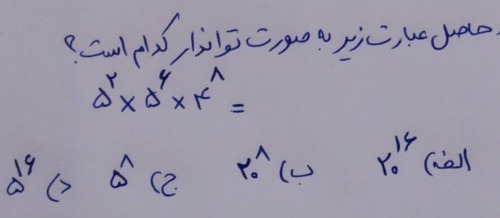 حاصل عبارت زیر به صورت تواندار کدام است؟
۵^۲ × ۵^۶ × ۴^۸ =
الف) ۲۰^۱۶ ب) ۲۰^۸ ج) ۵^۸ د) ۵^۱۶